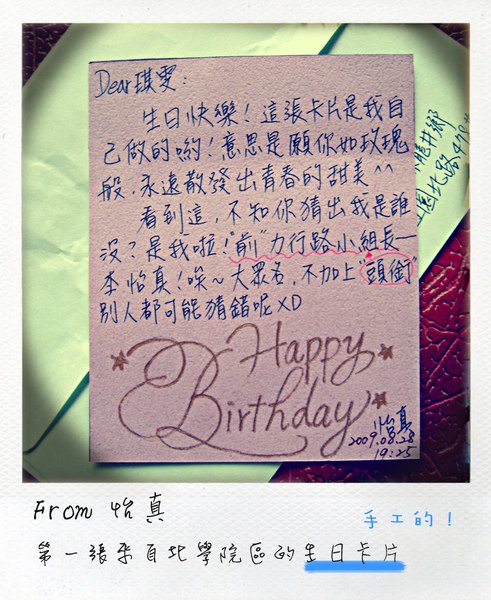 Dear琪雯:
生日快樂！這張卡片是我自
己做的喲！意思是願你如玫瑰
般，永遠散發出青春的甜美^^
看到這，不知你猜出我是誰
沒？是我啦！"前"力行路小組長—
李怡真！唉~大眾名，不加上"頭銜"
別人都可能猜錯呢XD
Happy
Birthday
怡真
2009.08.28
19:25
龍井鄉
北路478
From 怡真
手工的！
第一張來自北學院區的生日卡片